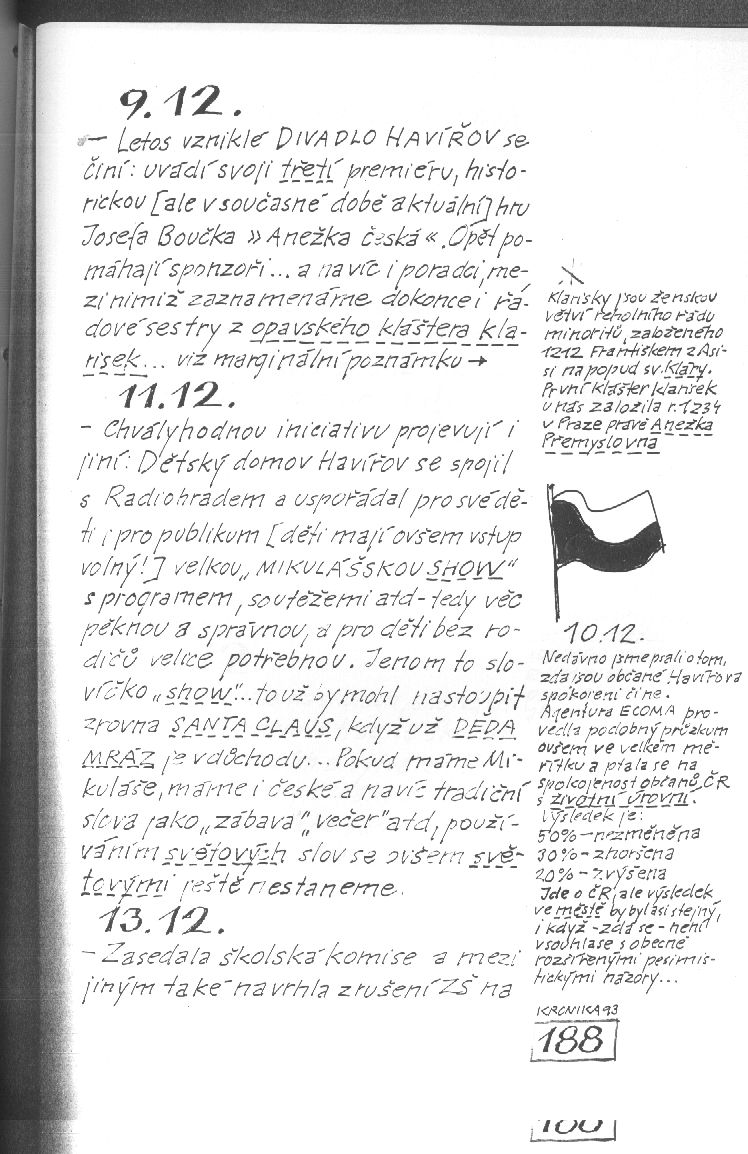 9.12.
– Letos vzniklé DIVADLO HAVÍŘOV se
činí: uvádí svoji třetí premiéru, histo-
rickou [ale v současné době aktuální] hru
Josefa Boučka » Anežka česká «. Opět po-
máhají sponzoři... a navíc i poradci, me-
zi nimiž zaznamenáme dokonce i řá-
dové sestry z opavského kláštera kla-
risek... viz marginální poznámku →
11.12.
– Chvályhodnou iniciativu projevují i
jiní: Dětský domov Havířov se spojil
s Radiohradem a uspořádal pro své dě-
ti i pro publikum [děti mají ovšem vstup
volný!] velkou „MIKULÁŠSKOU SHOW“
s programem, soutěžemi atd – tedy věc
pěknou a správnou, a pro děti bez ro-
dičů velice potřebnou. Jenom to slo-
víčko „show“... to už by mohl nastoupit
zrovna SANTA CLAUS, když už DĚDA
MRÁZ je v důchodu... Pokud máme Mi-
kuláše, máme i české a navíc tradiční
slova jako „zábava“, „večer“ atd, použí-
váním světových slov se ovšem svě-
tovými ještě nestaneme.
13.12.
– Zasedala školská komise a mezi
jiným také navrhla zrušení ZŠ na
Klarisky jsou ženskou
větví řeholního řádu
minoritů, založeného
1212 Františkem z Asi-
si na popud sv. Kláry.
První klášter klarisek
u nás založila r. 1234
v Praze právě Anežka
Přemyslovna
10.12.
Nedávno jsme psali o tom,
zda jsou občané Havířova
spokojeni či ne.
Agentura ECOMA pro-
vedla podobný průzkum
ovšem ve velkém mě-
řítku a ptala se na
spokojenost občanů ČR
s životní úrovní.
Výsledek je:
50% – nezměněna
30% – zhoršena
20% – zvýšena
Jde o ČR, ale výsledek
ve městě by byl asi stejný,
i když – zdá se – není
v souhlase s obecně
rozšířenými pesimis-
tickými názory...
KRONIKA 93
188
188